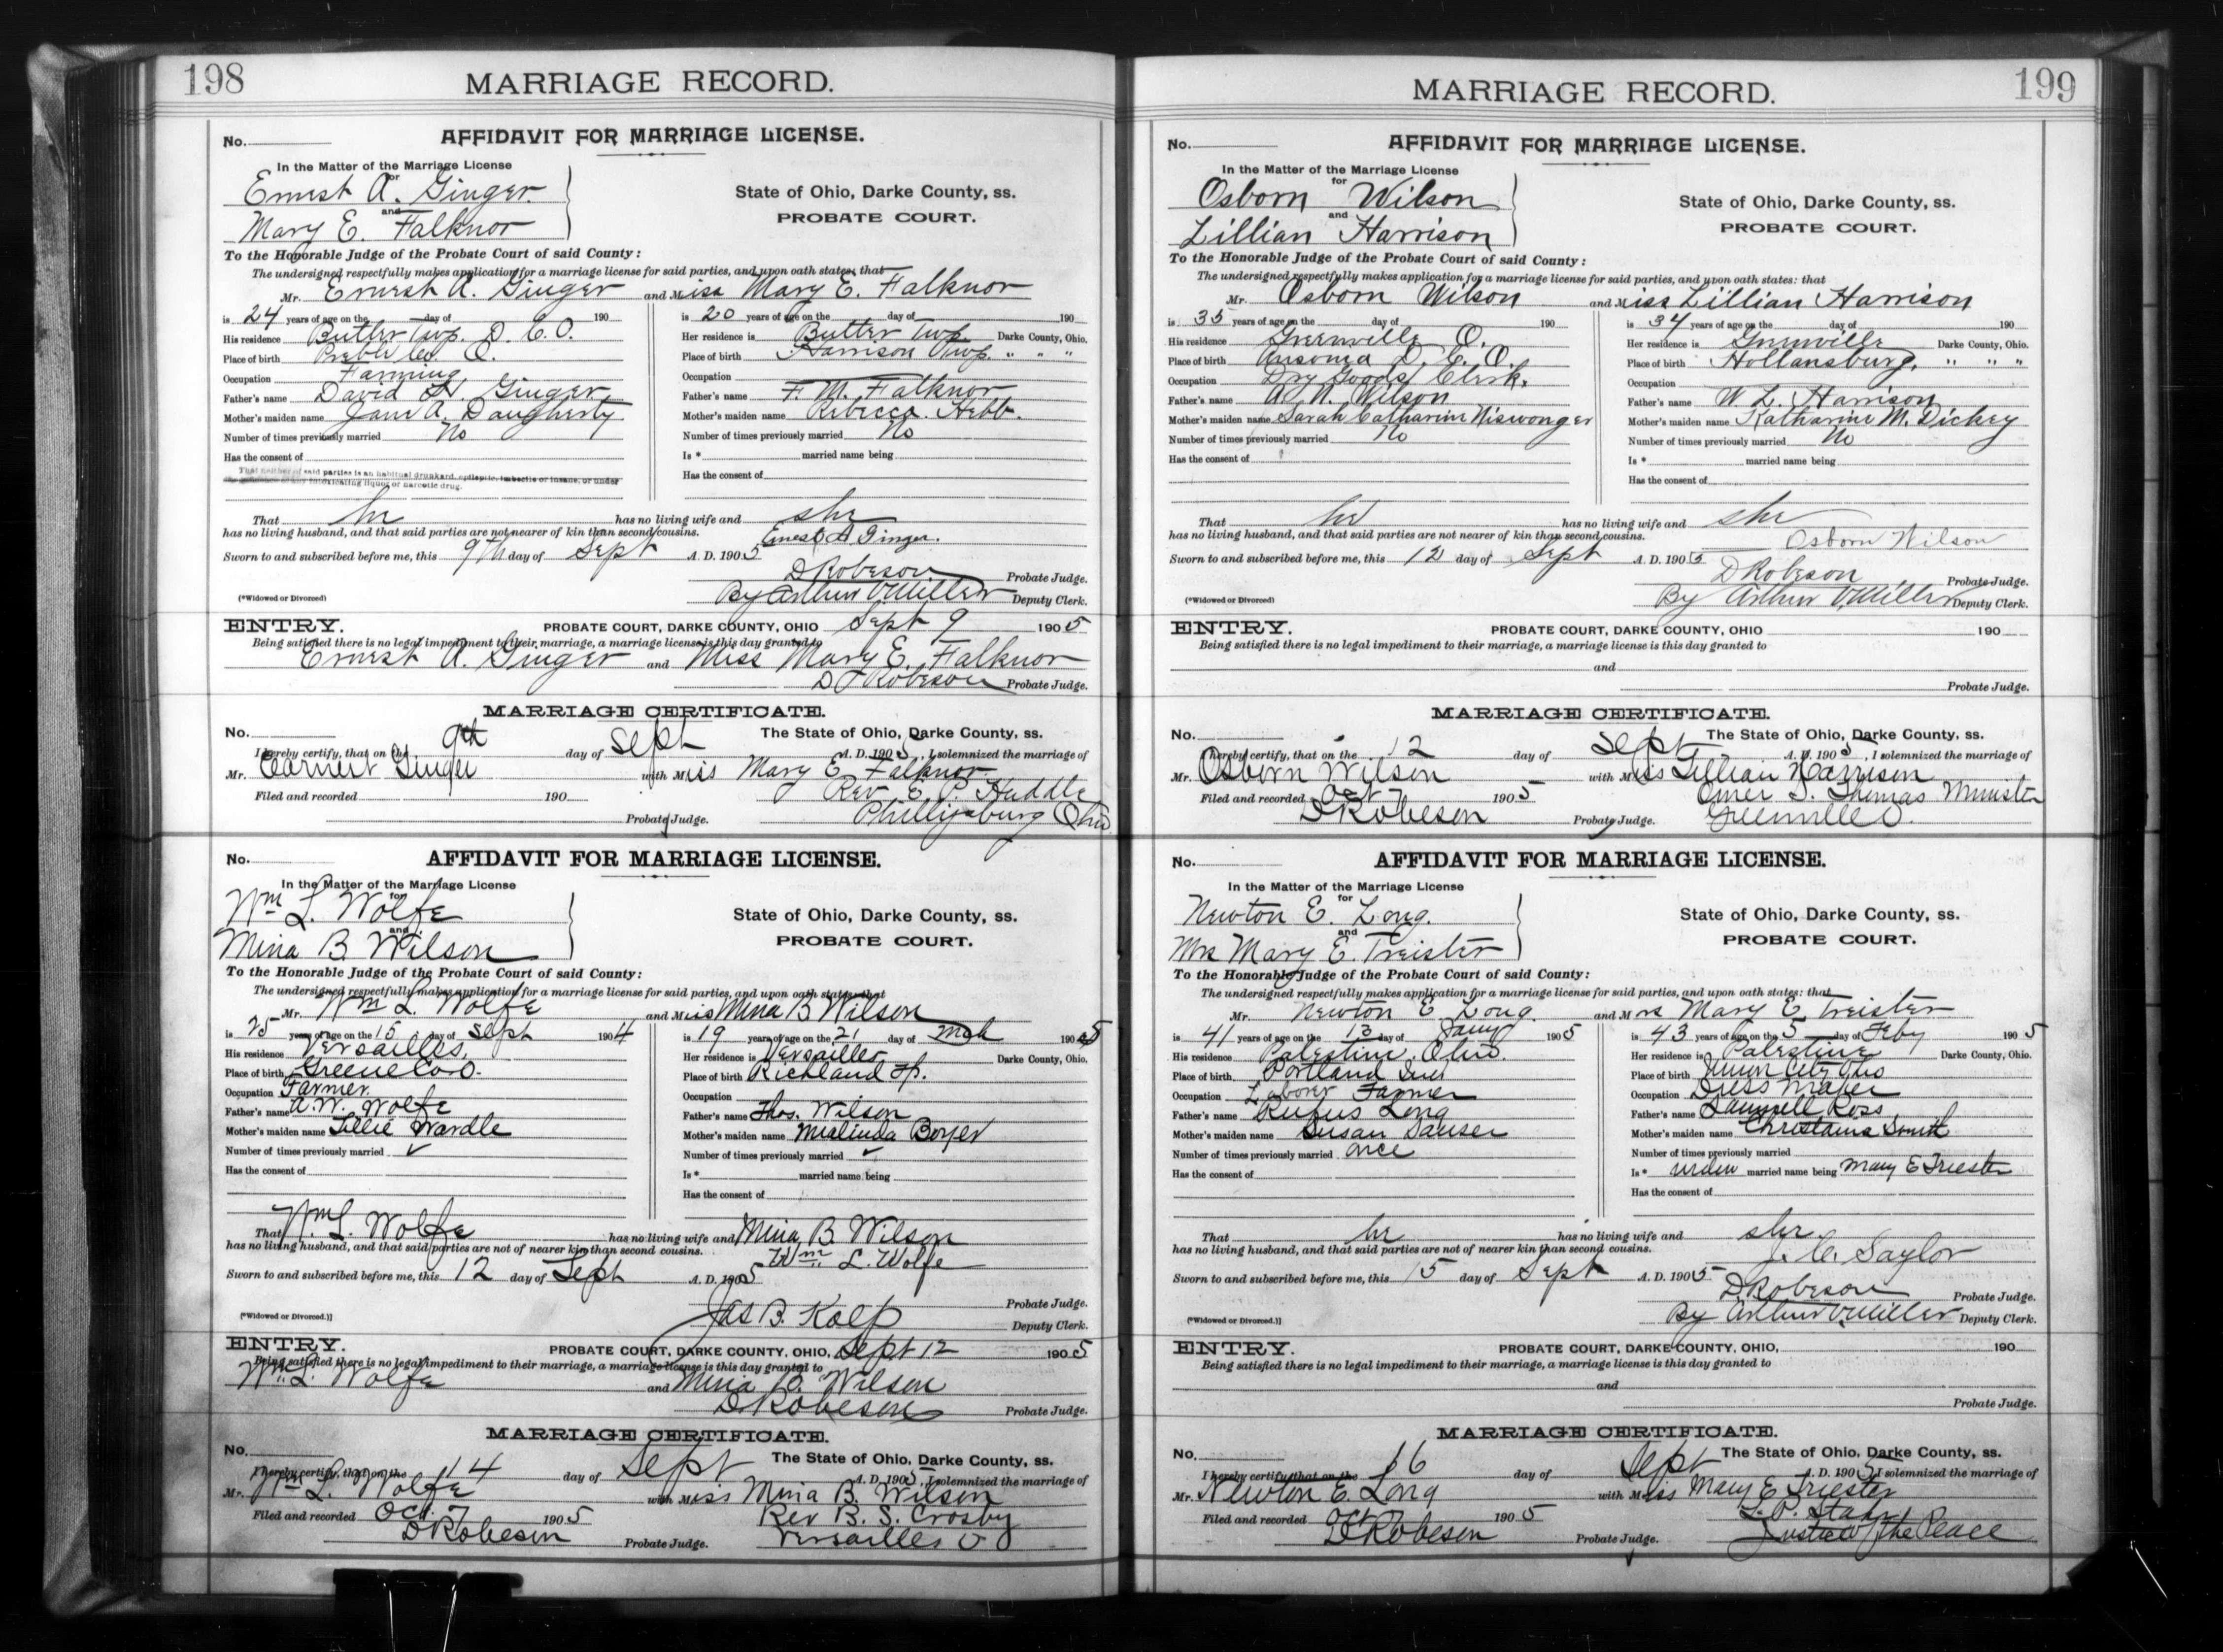 198
MARRIAGE RECORD.
AFFIDAVIT FOR MARRIAGE LICENSE.
No.
In the Matter of the Marriage License
for
Ernest A. Ginger
and
Mary E. Falknor
State of Ohio, Darke County, ss.
PROBATE COURT.
To the Honorable Judge of the Probate Court of said County:
The undersigned respectfully makes application for a marriage license for said parties, and upon oath states: that
Mr. Ernest A. Ginger and Miss Mary E. Falknor
is 24 years of age on the day of 190
His residence Butler Twp. D. C. O.
Place of birth Preble Co. O.
Occupation Farming
Father's name David H. Ginger
Mother's maiden name Jane A. Daugherty
Number of times previously married No
Has the consent of
That neither of said parties is an habitual drunkard, epileptic, imbecile or insane, or under
any intoxicating liquor or narcotic drug.
is 20 years of age on the day of 190
Her residence is Butler Twp Darke County, Ohio.
Place of birth Harrison Twp. " " "
Occupation
Father's name F. M. Falknor
Mother's maiden name Rebecca Hebb.
Number of times previously married No
Is * married name being
Has the consent of
That he has no living wife and she
has no living husband, and that said parties are not nearer of kin than second cousins.
Ernest A Ginger.
Sworn to and subscribed before me, this 9th day of Sept A. D. 1905
D Robeson Probate Judge.
(*Widowed or Divorced) By Arthur V. Miller Deputy Clerk.
ENTRY. PROBATE COURT, DARKE COUNTY, OHIO Sept 9 1905
Being satisfied there is no legal impediment to their marriage, a marriage license is this day granted to
Ernest A. Ginger and Miss Mary E. Falknor
D Robeson Probate Judge.
MARRIAGE CERTIFICATE.
No. The State of Ohio, Darke County, ss.
I hereby certify, that on the 9th day of Sept A. D. 1905, I solemnized the marriage of
Mr. Earnest Ginger with Miss Mary E. Falknor
Filed and recorded 190 Rev E. P. Huddle
Probate Judge. Phillipsburg Ohio
No. AFFIDAVIT FOR MARRIAGE LICENSE.
In the Matter of the Marriage License
for
Wm L. Wolfe
and
Mina B Wilson
State of Ohio, Darke County, ss.
PROBATE COURT.
To the Honorable Judge of the Probate Court of said County:
The undersigned respectfully makes application for a marriage license for said parties, and upon oath states: that
Mr. Wm L. Wolfe and Miss Mina B Wilson
is 25 years of age on the 15 day of Sept 1904
His residence Versailles,
Place of birth Greene Co O.
Occupation Farmer
Father's name A. W. Wolfe
Mother's maiden name Tillie Wardle
Number of times previously married ✓
Has the consent of
is 19 years of age on the 21 day of Mch 1905
Her residence is Versailles Darke County, Ohio.
Place of birth Richland Tp.
Occupation
Father's name Thos. Wilson
Mother's maiden name Malinda Boyer
Number of times previously married ✓
Is * married name being
Has the consent of
That Wm L. Wolfe has no living wife and Mina B Wilson
has no living husband, and that said parties are not of nearer kin than second cousins.
Wm. L. Wolfe
Sworn to and subscribed before me, this 12 day of Sept A. D. 1905
Probate Judge.
(*Widowed or Divorced.)] Jas B. Kolp Deputy Clerk.
ENTRY. PROBATE COURT, DARKE COUNTY, OHIO, Sept 12 1905
Being satisfied there is no legal impediment to their marriage, a marriage license is this day granted to
Wm. L. Wolfe and Mina B. Wilson
D Robeson Probate Judge.
MARRIAGE CERTIFICATE.
No. The State of Ohio, Darke County, ss.
I hereby certify, that on the 14 day of Sept A. D. 1905, I solemnized the marriage of
Mr. Wm L. Wolfe with Miss Mina B. Wilson
Filed and recorded Oct. 7 1905 Rev B. S. Crosby
D Robeson Probate Judge. Versailles O
MARRIAGE RECORD.
199
No. AFFIDAVIT FOR MARRIAGE LICENSE.
In the Matter of the Marriage License
for
Osborn Wilson
and
Lillian Harrison
State of Ohio, Darke County, ss.
PROBATE COURT.
To the Honorable Judge of the Probate Court of said County:
The undersigned respectfully makes application for a marriage license for said parties, and upon oath states: that
Mr. Osborn Wilson and Miss Lillian Harrison
is 35 years of age on the day of 190
His residence Greenville O.
Place of birth Ansonia D. C. O.
Occupation Dry Goods Clerk.
Father's name Wilson
Mother's maiden name Sarah Catharine Niswonger
Number of times previously married No
Has the consent of
is 34 years of age on the day of 190
Her residence is Greenville Darke County, Ohio.
Place of birth Hollansburg, " " "
Occupation
Father's name W L. Harrison
Mother's maiden name Katharine M. Dickey
Number of times previously married No
Is * married name being
Has the consent of
That he has no living wife and she
has no living husband, and that said parties are not nearer of kin than second cousins.
Osborn Wilson
Sworn to and subscribed before me, this 12 day of Sept A. D. 1905
D Robeson Probate Judge.
(*Widowed or Divorced) By Arthur V. Miller Deputy Clerk.
ENTRY. PROBATE COURT, DARKE COUNTY, OHIO 190
Being satisfied there is no legal impediment to their marriage, a marriage license is this day granted to
and
Probate Judge.
MARRIAGE CERTIFICATE.
No. The State of Ohio, Darke County, ss.
I hereby certify, that on the 12 day of Sept A. D. 1905, I solemnized the marriage of
Mr. Osborn Wilson with Miss Lillian Harrison
Filed and recorded Oct 7 1905 Omer S. Thomas Minister
D Robeson Probate Judge. Greenville O.
No. AFFIDAVIT FOR MARRIAGE LICENSE.
In the Matter of the Marriage License
for
Newton E. Long.
and
Mrs Mary E. Treister
State of Ohio, Darke County, ss.
PROBATE COURT.
To the Honorable Judge of the Probate Court of said County:
The undersigned respectfully makes application for a marriage license for said parties, and upon oath states: that
Mr. Newton E. Long. and Mrs Mary E Treister
is 41 years of age on the 13 day of Jany 1905
His residence Palestine, Ohio.
Place of birth Portland Ind
Occupation Laborer Farmer
Father's name Rufus Long
Mother's maiden name Susan
Number of times previously married once
Has the consent of
is 43 years of age on the 5 day of Feby 1905
Her residence is Palestine Darke County, Ohio.
Place of birth Union City Ohio
Occupation Dress Maker
Father's name Ross
Mother's maiden name Smith
Number of times previously married
Is * widow married name being Mary E Triester
Has the consent of
That he has no living wife and she
has no living husband, and that said parties are not of nearer kin than second cousins.
J. C. Saylor
Sworn to and subscribed before me, this 15 day of Sept A. D. 1905
D Robeson Probate Judge.
(*Widowed or Divorced.)] By Arthur V. Miller Deputy Clerk.
ENTRY. PROBATE COURT, DARKE COUNTY, OHIO, 190
Being satisfied there is no legal impediment to their marriage, a marriage license is this day granted to
and
Probate Judge.
MARRIAGE CERTIFICATE.
No. The State of Ohio, Darke County, ss.
I hereby certify that on the 16 day of Sept A. D. 1905 I solemnized the marriage of
Mr. Newton E. Long with Miss Mary E Triester
Filed and recorded Oct 7 1905 L. P. Stahr
D Robeson Probate Judge. Justice of the Peace